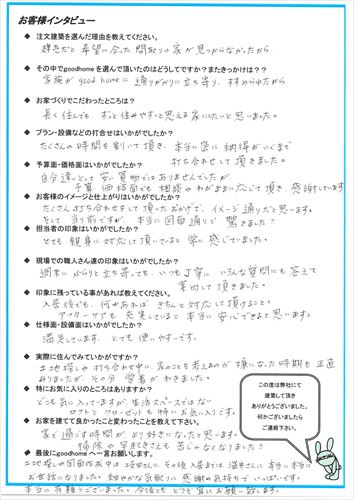 お客様インタビュー
◆ 注文建築を選んだ理由を教えてください。
建売だと希望に合った間取りの家が見つからなかったから
◆ その中でgoodhomeを選んで頂いたのはどうしてですか？またきっかけは？？
家族が good homeに通りがかりに立ち寄り、すすめられたから
◆ お家づくりでこだわったところは？
長く住んでも、ずっと住みやすいと思える家にしたいと思いました。
◆ プラン・設備などの打合せはいかがでしたか？
たくさんの時間を割いて頂き、本当に皆に納得がいくまで
打ち合わせして頂きました。
◆ 予算面・価格面はいかがでしたか？
自分達にとって安い買物ではありませんでしたが、
予算、価格面でも相談やわがままに応じて頂き、感謝しています
◆ お客様のイメージと仕上がりはいかがでしたか？
たくさん打ち合わせをして頂いたおかげで、イメージ通りだと思います。
そして当り前ですが、本当に図面通りで驚きました!!
◆ 担当者の印象はいかがでしたか？
とても親身に対応して頂いていると常に感じていました。
◆ 現場での職人さん達の印象はいかがでしたか？
週末にふらりと立ち寄っても、いつも丁寧にいろんな質問にも答えて
案内して頂きました。
◆ 印象に残っている事があれば教えてください。
入居後でも、何かあればきちんと対応して頂けること。
アフターケアも充実していると本当に安心できると思います。
◆ 仕様面・設備面はいかがでしたか？
満足しています。とても使いやすいです。
◆ 実際に住んでみていかがですか？
土地探しや打ち合わせ中に、家のことを考えるのが嫌になった時期も正直
ありましたが、その分愛着がわきました。
◆ 特にお気に入りのところはありますか？
どこも気に入ってますが、生活スペースではない
ロフトとクローゼットも特にお気に入りです。
◆ お家を建てて良かったこと変わったことを教えて下さい。
家で過ごす時間が、より好きになったと思います。
掃除や早起きさえも苦じゃなくなりました！
◆ 最後にgoodhomeへ一言お願いします。
土地探しや図面作成中は坂田さんに、その後入居までは酒井さんに本当に本当に
お世話になりました。細やかな気配りに感謝の気持ちでいっぱいです。
本当に有難うございました。今後ともどうぞ宜しくお願い致します。
この度は弊社にて
建築して頂き
ありがとうございました。
何かございましたら
ご連絡下さい。